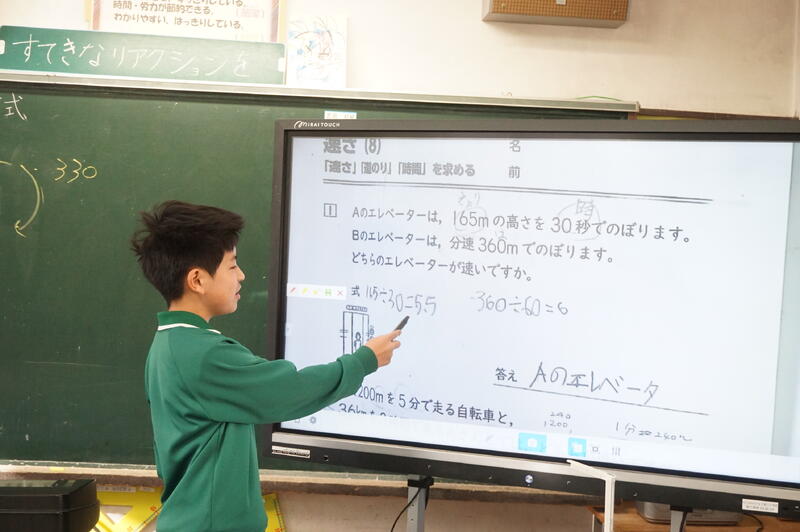 時間・労力が節約できる。
わかりやすい、はっきりしている。
すてきなリアクションを
式
330
MIRAI TOUCH
速さ(8)
名
前
「速さ」「道のり」「時間」を求める
時
1 Aのエレベーターは、165mの高さを30秒でのぼります。
Bのエレベーターは、分速360mでのぼります。
どちらのエレベーターが速いですか。
式 165÷30=5.5
360÷60=6
答え Aのエレベータ
200mを5分で走る自転車と、
240
1200
1分